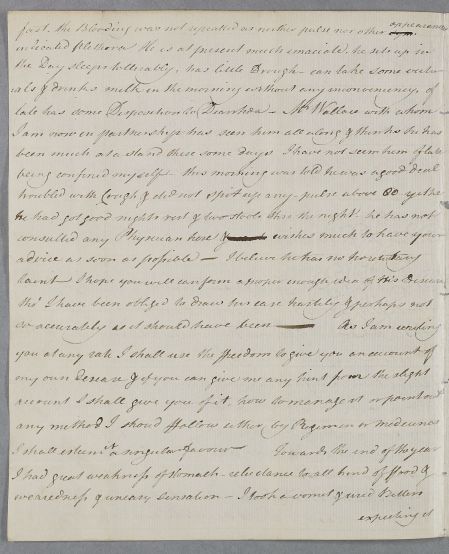 fast. the Bleeding was not repeated as neither pulse nor other appearances
indicated Plethora He is at present much emaciate, he sits up in
the Day sleeps tollerably, has little Drough - can take some victu-
als & drinks milk in the morning without any inconveniency, of
late has some Disposition to Diarrhœa - Mr Wallace with whom
I am now in partnership has seen him all along & thinks he has
been much at a stand these some days I have not seen him of late
being confined myself - this morning was told he was a good deal
troubled with Cough & did not spit up any - pulse above 80 yet he
he had got good nights rest & two stools thro the night. he has not
consulted any Physician here & wishes much to have your
advice as soon as possible - I believe he has no hereditary
taint - I hope you will can form a proper enough idea of his Disease
tho' I have been obliged to draw his case hastily & perhaps not
so accurately as it should have been — As I am writing
you at any rate I shall use the freedom to give you an account of
my own Disease & if you can give me any hint from the slight
account I shall give you of it, how to manage it or point out
any method I shoud follow either by Regimen or medicines
I shall esteem it a singular favour - Towards the end of the year
I had great weakness of stomach - reluctance to all kind of food &
weariedness & uneasy sensation - I took a vomit & used Bitters
expecting it